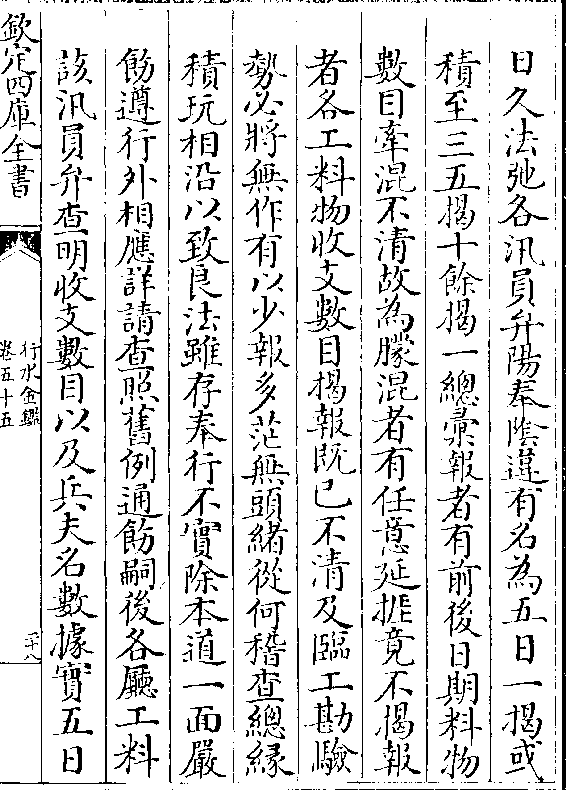 日久法弛各汛員弁陽奉陰違有名為五日一揭或
積至三五揭十餘揭一總彙報者有前後日期料物
數目牽混不清故為朦混者有任意延捱竟不揭報
者各工料物收支數目揭報既已不清及臨工勘驗
勢必將無作有以少報多茫無頭緒從何稽查總緣
積玩相沿以致良法雖存奉行不實除本道一面嚴
飭遵行外相應詳請查照舊例通飭嗣後各廳工料
該汛員弁查明收支數目以及兵夫名數據實五日
欽定四庫全書
行水金鑑
卷五十五
二十八